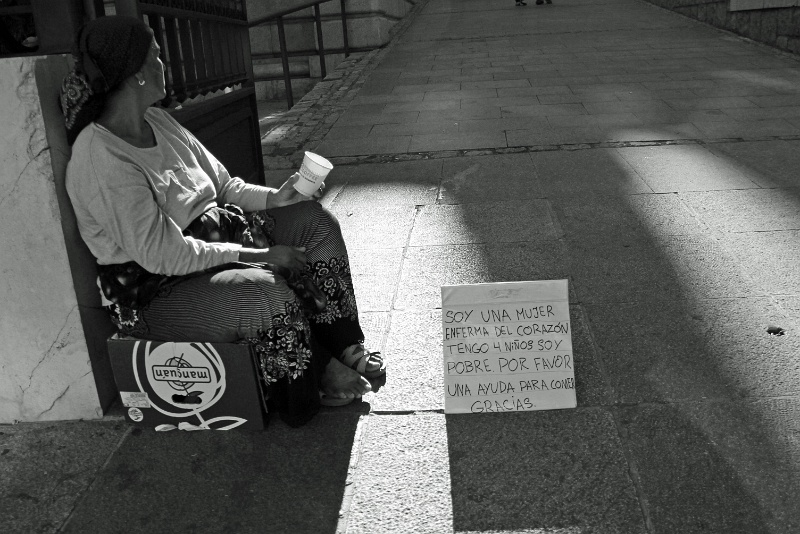 SOY UNA MUJER
ENFERMA DEL CORAZÓN
TENGO 4 NIÑOS SOY
POBRE. POR FAVOR
UNA AYUDA PARA COMER
GRACIAS.
manguán